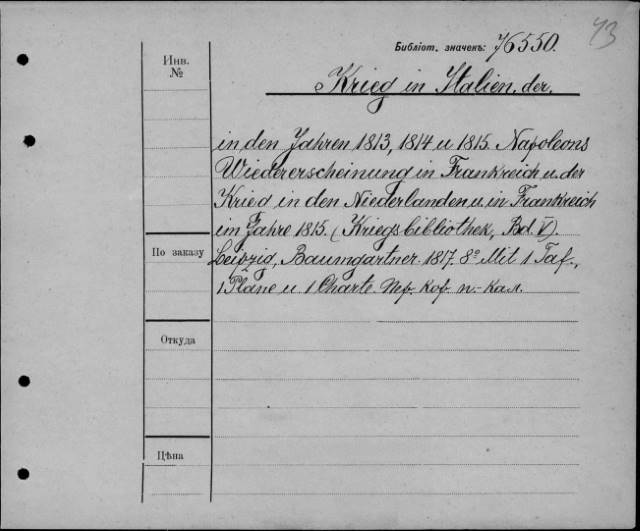 73
Библіот. значекъ: 76550.
Инв.
№
Krieg in Italien, der.
in den Jahren 1813, 1814 u 1815. Napoleons
Wiedererscheinung in Frankreich u. der
Krieg in den Niederlanden u. in Frankreich
im Jahre 1815. (Kriegsbibliothek, Bd. V).
По заказу
Leipzig, Baumgartner 1817. 8º Mit 1 Taf.,
1 Plane u. 1 Charte.
Откуда
Цѣна